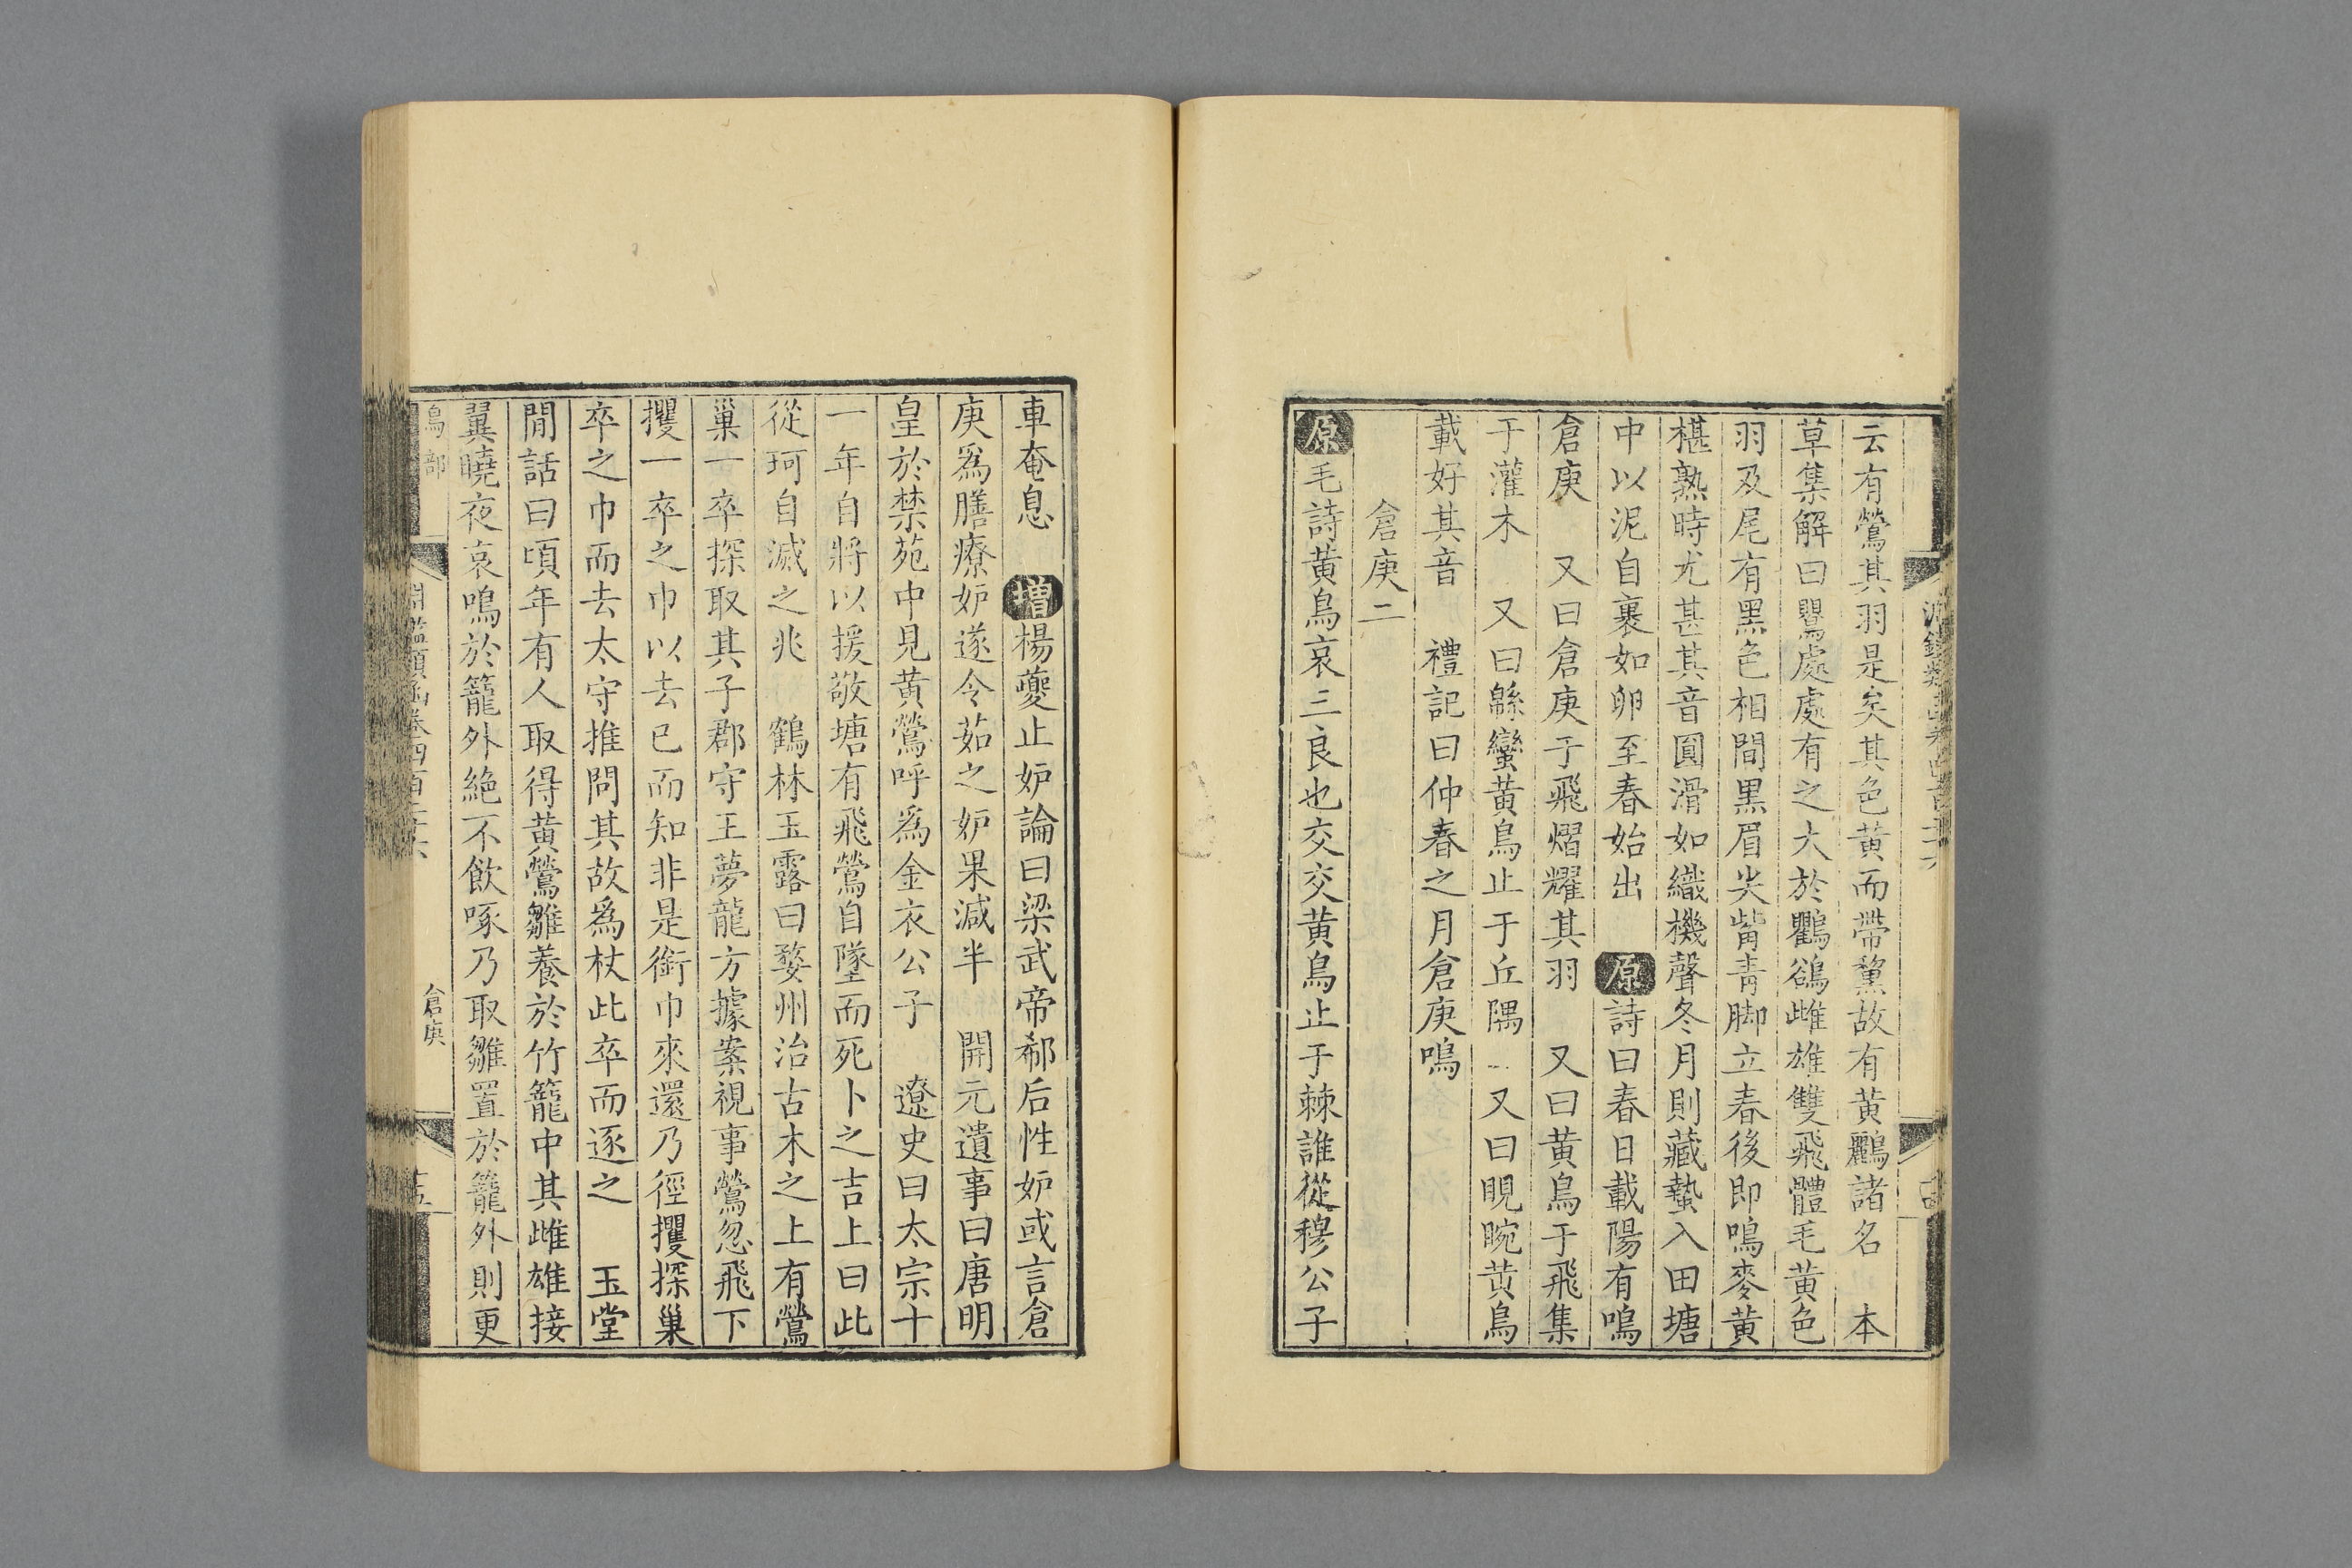 云有鶯其羽是矣其色黄而帶黧故有黄鸝諸名　本
草集解曰鸎處處有之大於鸜鵒雌雄雙飛體毛黄色
羽及尾有黑色相間黒眉尖觜青脚立春後即鳴麥黄
椹熟時尤甚其音圓滑如織機聲冬月則藏蟄入田塘
中以泥自裹如卵至春始出　原詩曰春日載陽有鳴
倉庚　又曰倉庚于飛熠耀其羽　又曰黄鳥于飛集
于灌木　又曰緜蠻黄鳥止于丘隅　又曰睍睆黄鳥
載好其音　禮記曰仲春之月倉庚鳴
倉庚二
原毛詩黄鳥哀三良也交交黄鳥止于棘誰從穆公子
車奄息　増楊夔止妒論曰梁武帝郗后性妒或言倉
庚爲膳療妒遂令茹之妒果減半　開元遺事曰唐明
皇於禁苑中見黄鶯呼爲金衣公子　遼史曰太宗十
一年自將以援敬塘有飛鶯自墜而死卜之吉上曰此
從珂自滅之兆　鶴林玉露曰婺州治古木之上有鶯
巢一卒探取其子郡守王夢龍方據案視事鶯忽飛下
攫一卒之巾以去已而知非是銜巾來還乃徑攫探巢
卒之巾而去太守推問其故爲杖此卒而逐之　玉堂
閒話曰頃年有人取得黄鶯雛養於竹籠中其雌雄接
翼曉夜哀鳴於籠外絶不飲啄乃取雛置於籠外則更
鳥部
倉庚